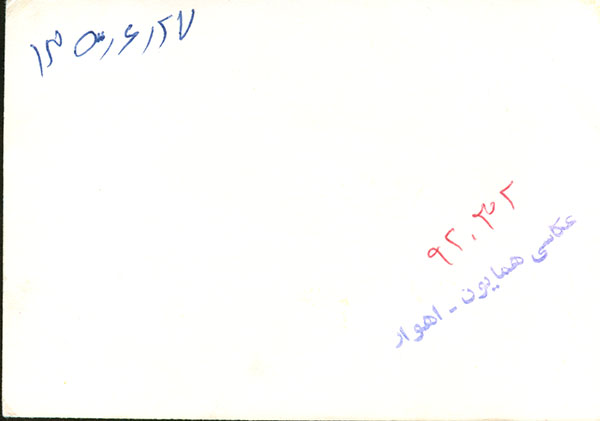 ۱۳۵۰/۶/۲۷
۹۲۰۳۲
عکاسی همایون - اهواز